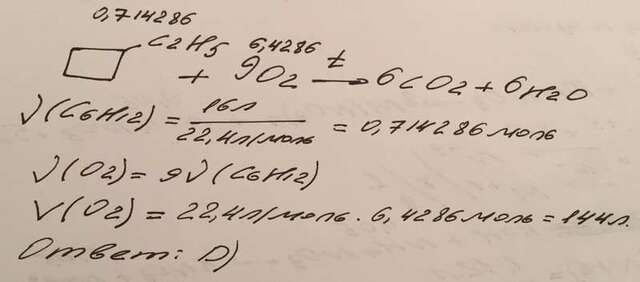 0,714286
C2H5 6,4286 t
+ 9O2 → 6CO2 + 6H2O
ν(C6H12) = 16л / 22,4л/моль = 0,714286 моль
ν(O2) = 9ν(C6H12)
V(O2) = 22,4л/моль · 6,4286 моль = 144л.
Ответ: D)